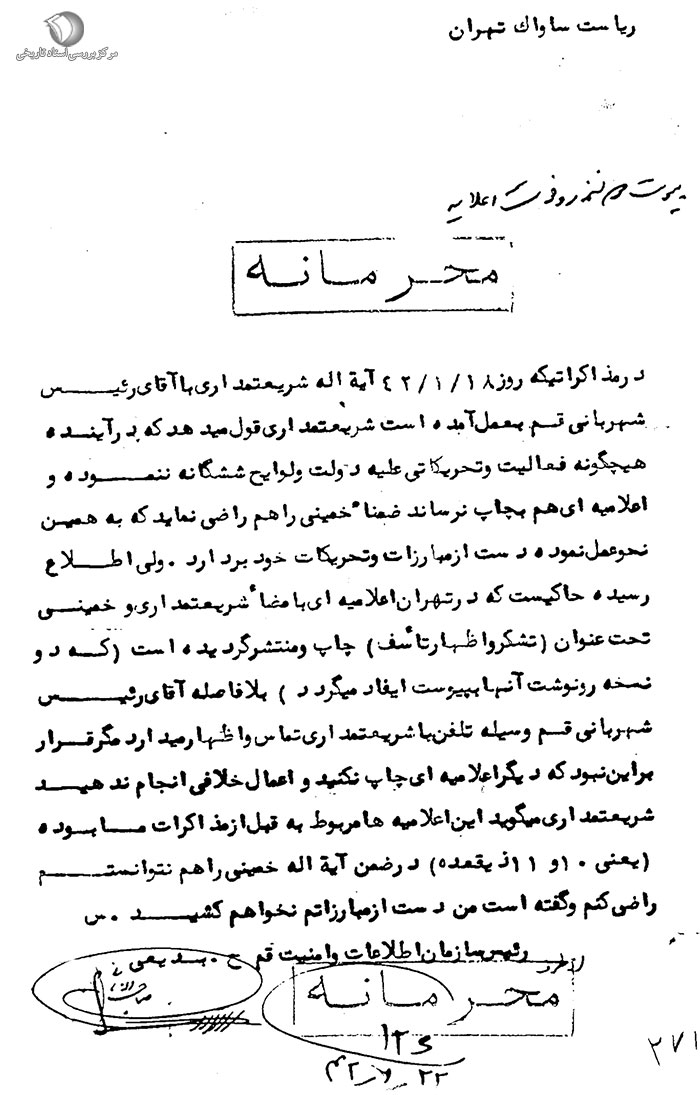 مرکز بررسی اسناد تاریخی
ریاست ساواك تهران
پیوست دو نسخه رونوشت اعلامیه
محرمانه
درمذاکراتیکه روز ۴۲/۱/۱۸ آیة اله شریعتمداری باآقای رئیس
شهربانی قم بعمل‌آمده است شریعتمداری قول میدهدکه درآینده
هیچگونه فعالیت وتحریکاتی علیه دولت ولوایح ششگانه ننموده و
اعلامیه ای‌هم بچاپ نرساند ضمناً خمینی راهم راضی نماید که به همین
نحوعمل‌نموده دست ازمبارزات وتحریکات خود بردارد . ولی اطلاع
رسیده حاکیست که درتهران اعلامیه ای‌بامضاً شریعتمداری و خمینی
تحت عنوان (تشکرواظهارتأسف) چاپ ومنتشرگردیده است (که دو
نسخه رونوشت آنهابپیوست ایفاد میگردد ) بلافاصله آقای رئیس
شهربانی قم وسیله تلفن باشریعتمداری تماس واظهارمیدارد مگرقرار
براین‌نبود که دیگراعلامیه ای‌چاپ نکنید و اعمال خلافی انجام ندهید
شریعتمداری میگوید این‌اعلامیه هامربوط به قبل‌ازمذاکرات مابوده
(یعنی ۱۰ و ۱۱ ذیقعده) درضمن آیة اله خمینی راهم نتوانستم
راضی‌کنم وگفته است من دست ازمبارزاتم نخواهم کشید . س
رئیس‌سازمان‌اطلاعات وامنیت قم ح . بدیعی
از طرف
محرمانه
۱۲۶
۲۲
۲۷۱